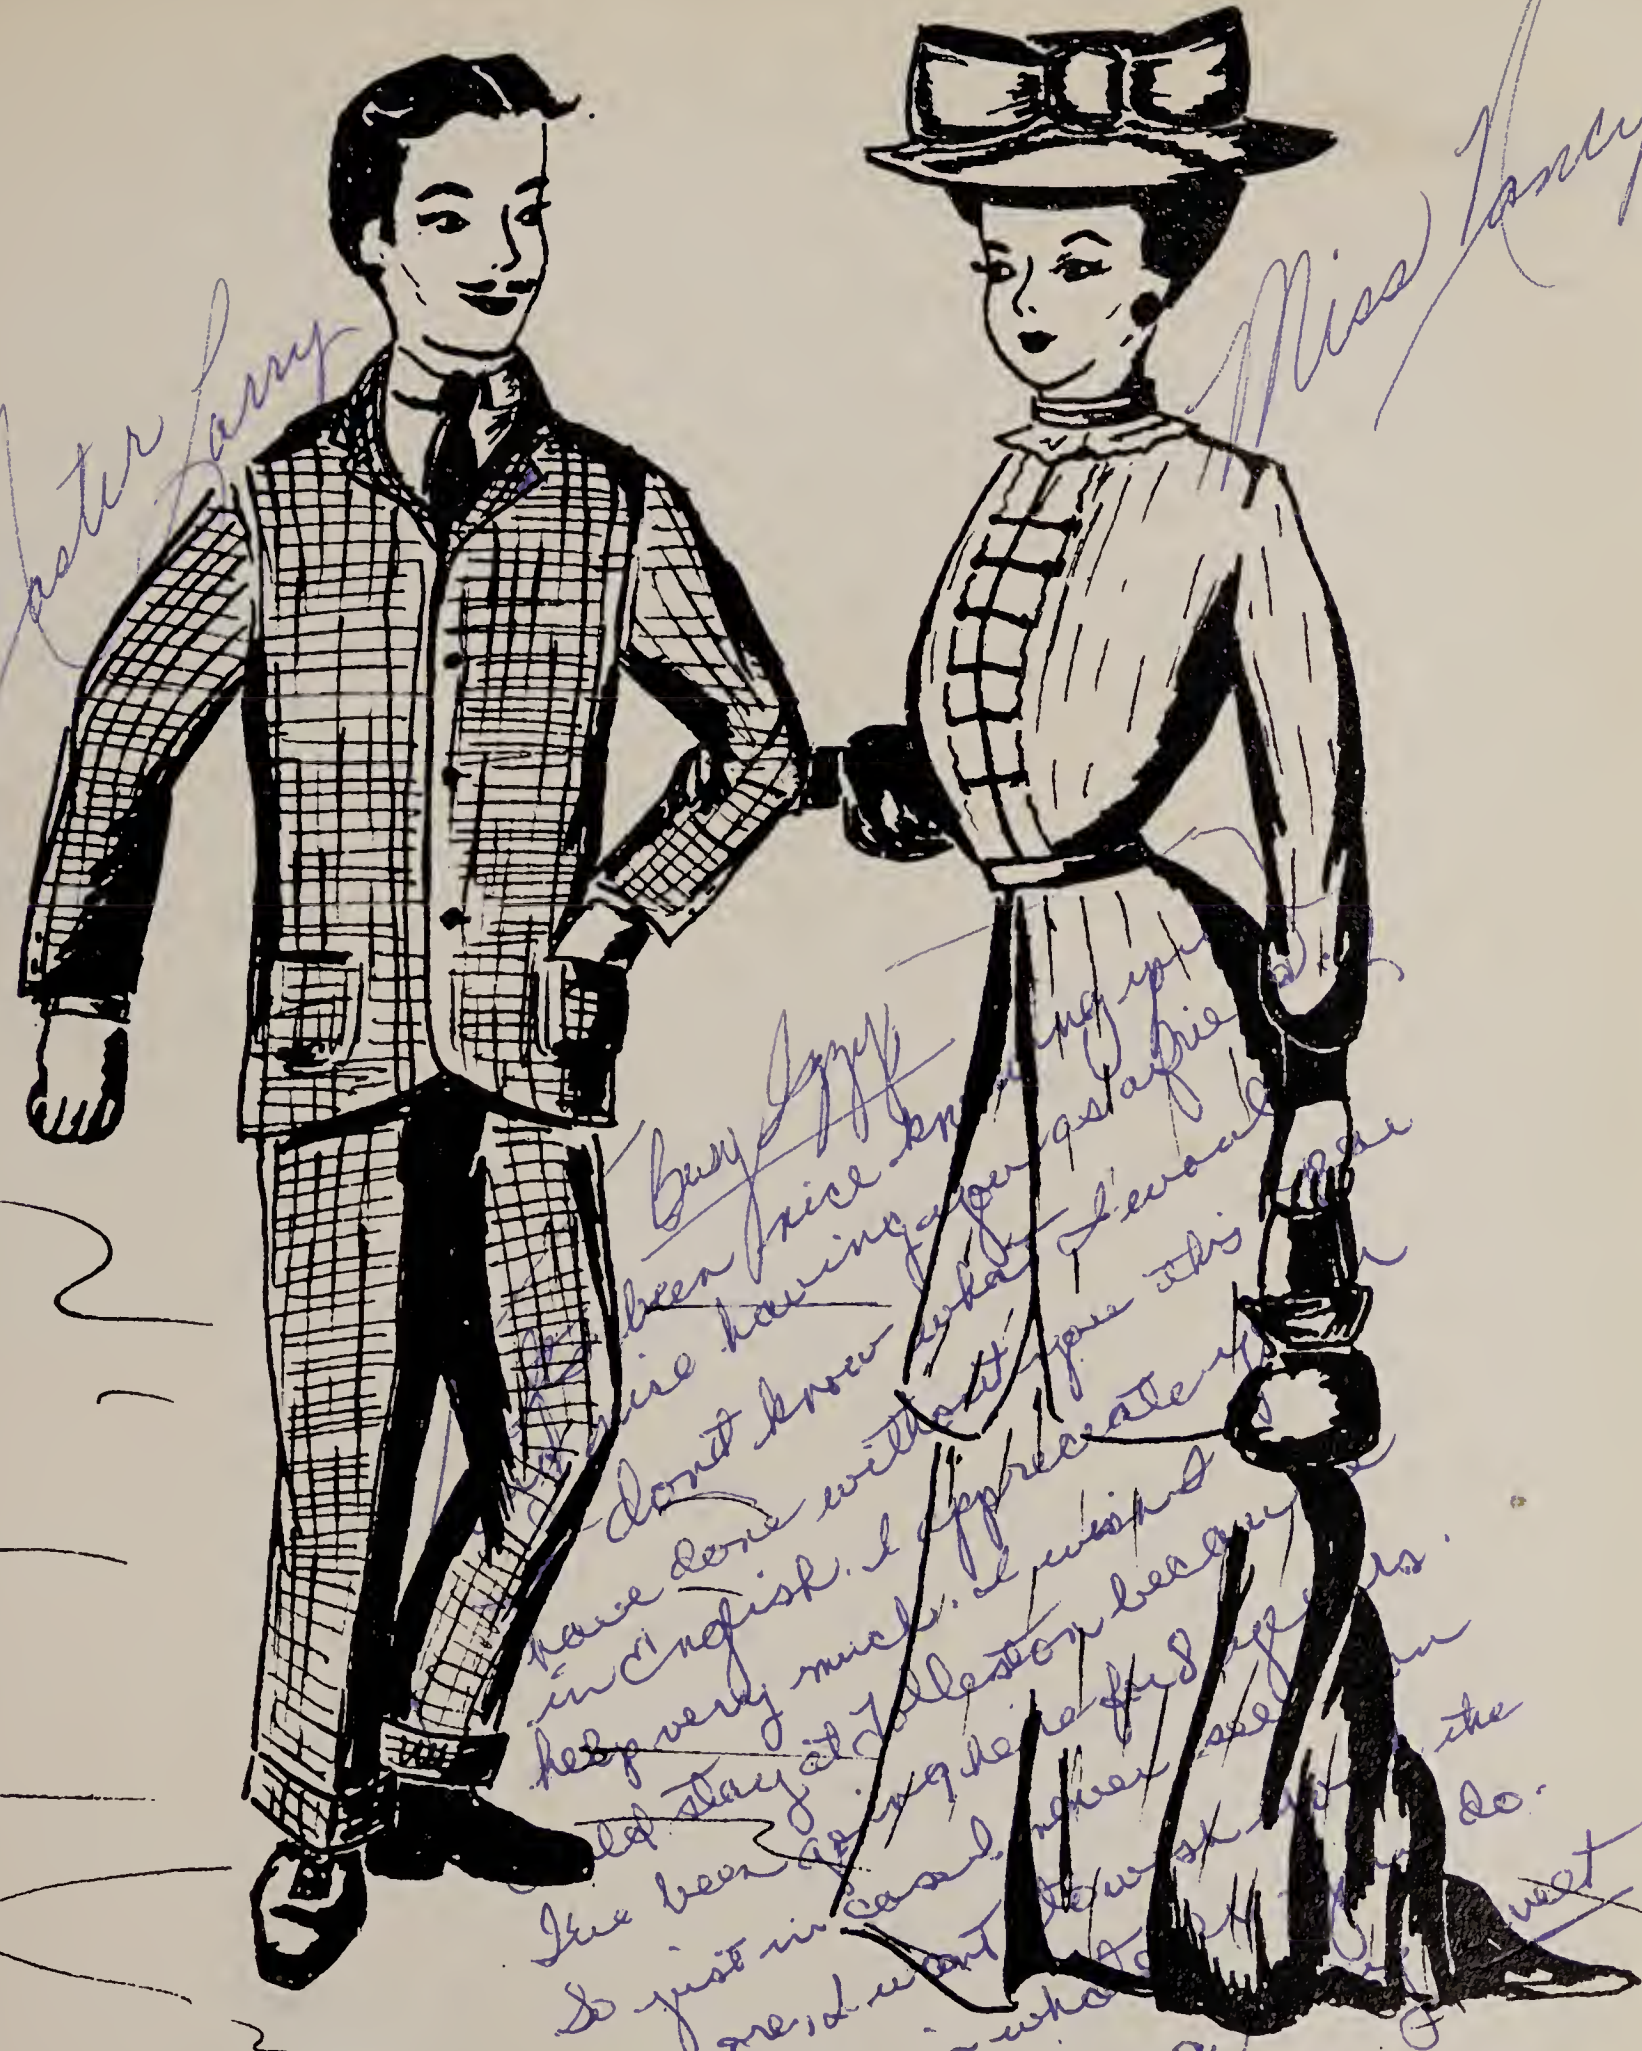 Master Larry
Miss Nancy
Busy Izzy,
It's been nice knowing you
and nice having you as a friend. I
don't know what I would
have done without you this year
in English. I appreciate your
help very much. I wish I
could stay at Tolleston because
I've been going here for 8 years.
So just in case I never see you
I want to wish you the
in whatever you do.